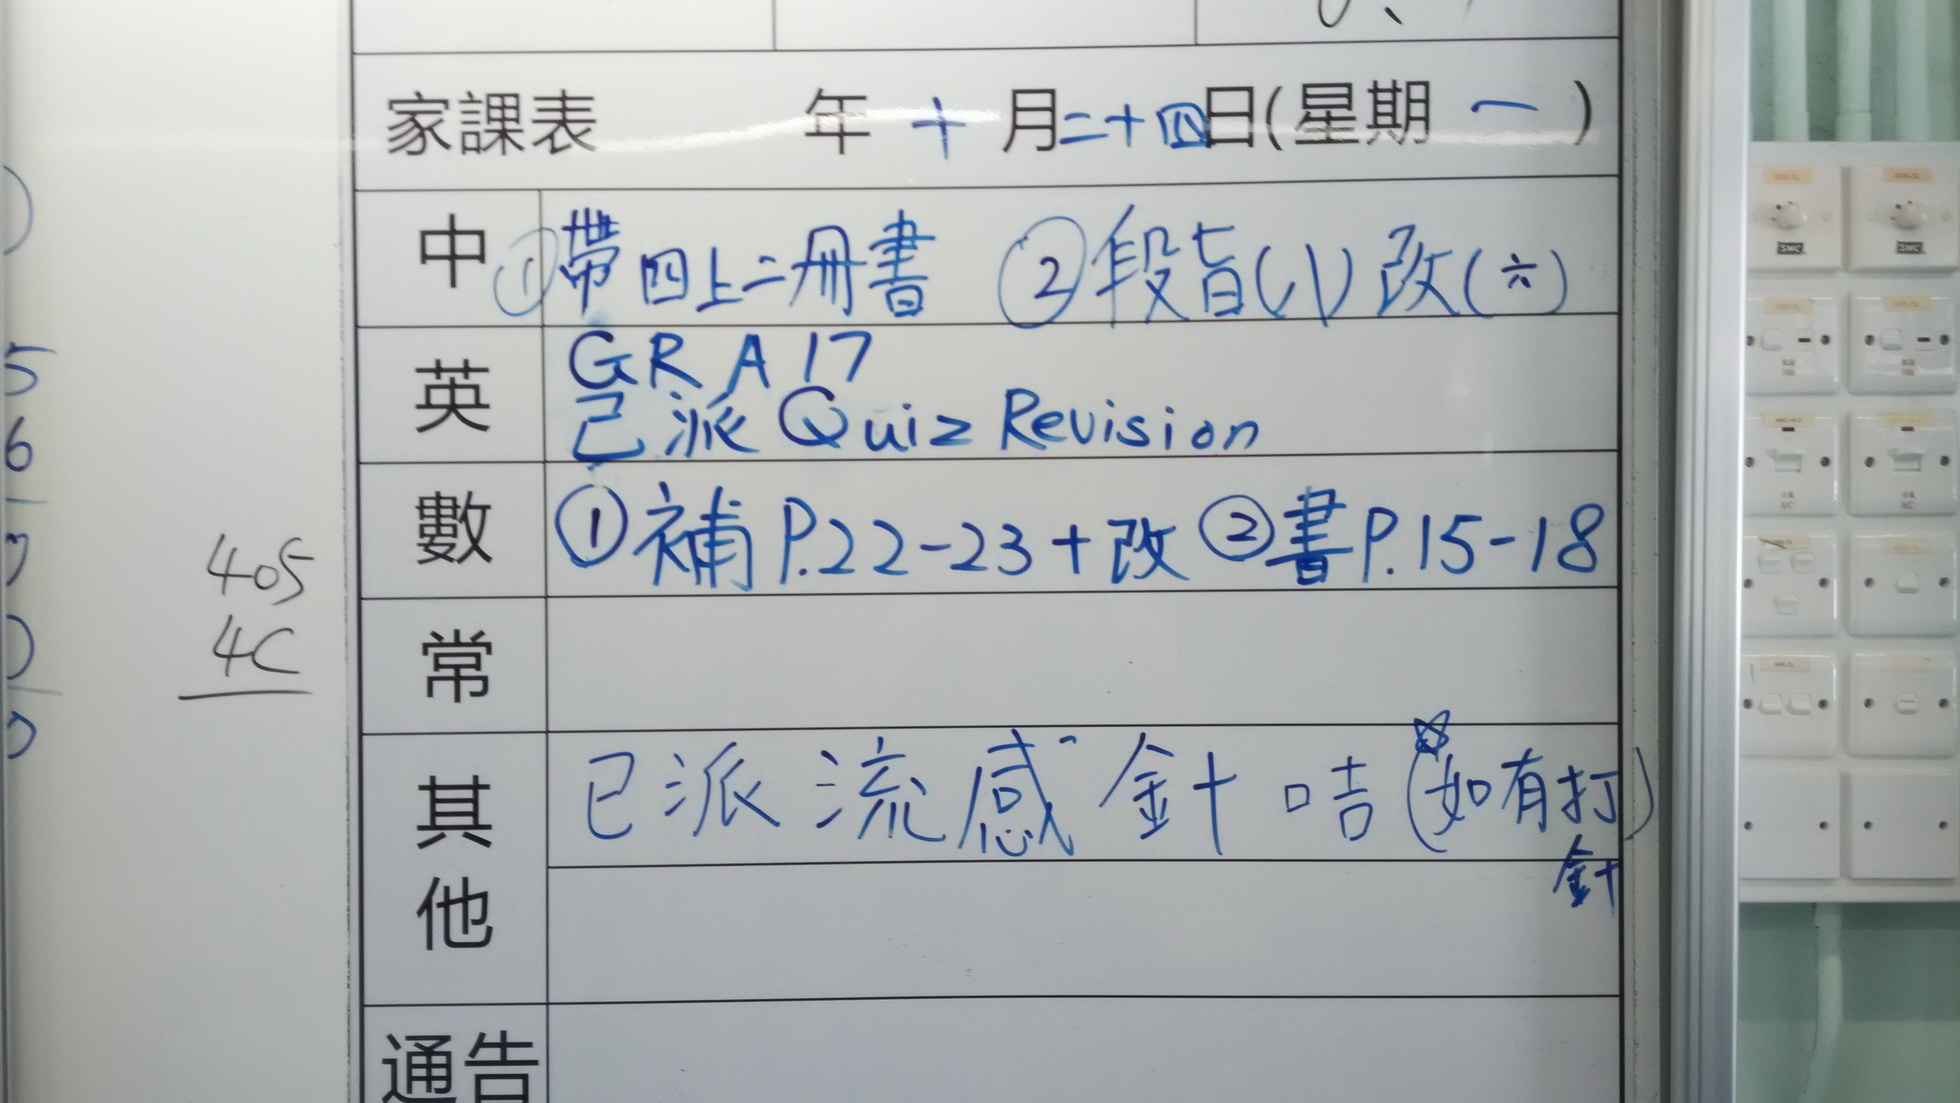 家課表 年 十 月二十四日(星期 一 )
中 ①帶四上二冊書 ②段旨(八)改(六)
英 GR A 17
已派 Quiz Revision
數 ①補 P.22-23+改 ②書 P.15-18
常
其他 已派流感針咭(如有打
針)
通告
405
4C
5
6